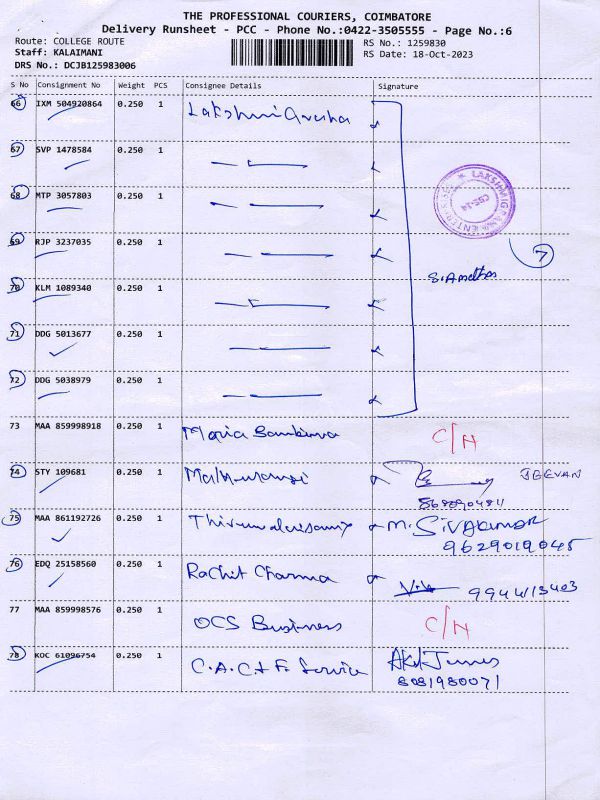 THE PROFESSIONAL COURIERS, COIMBATORE
Delivery Runsheet - PCC - Phone No.:0422-3505555 - Page No.:6
Route: COLLEGE ROUTE RS No.: 1259830
Staff: KALAIMANI RS Date: 18-Oct-2023
DRS No.: DCJB125983006
S No Consignment No Weight PCS Consignee Details Signature
66 IXM 504920864 0.250 1 Lakshmi
67 SVP 1478584 0.250 1
68 MTP 3057803 0.250 1
69 RJP 3237035 0.250 1
7
70 KLM 1089340 0.250 1
71 DDG 5013677 0.250 1
72 DDG 5038979 0.250 1
73 MAA 859998918 0.250 1 Maria C/H
74 STY 109681 0.250 1 JEEVAN
75 MAA 861192726 0.250 1 M. SIVAKUMAR
9629019045
76 EDQ 25158560 0.250 1 Rachit Charma
77 MAA 859998576 0.250 1 OCS Business C/H
78 KOC 61096754 0.250 1 C.A.C & F. Service
8081980071